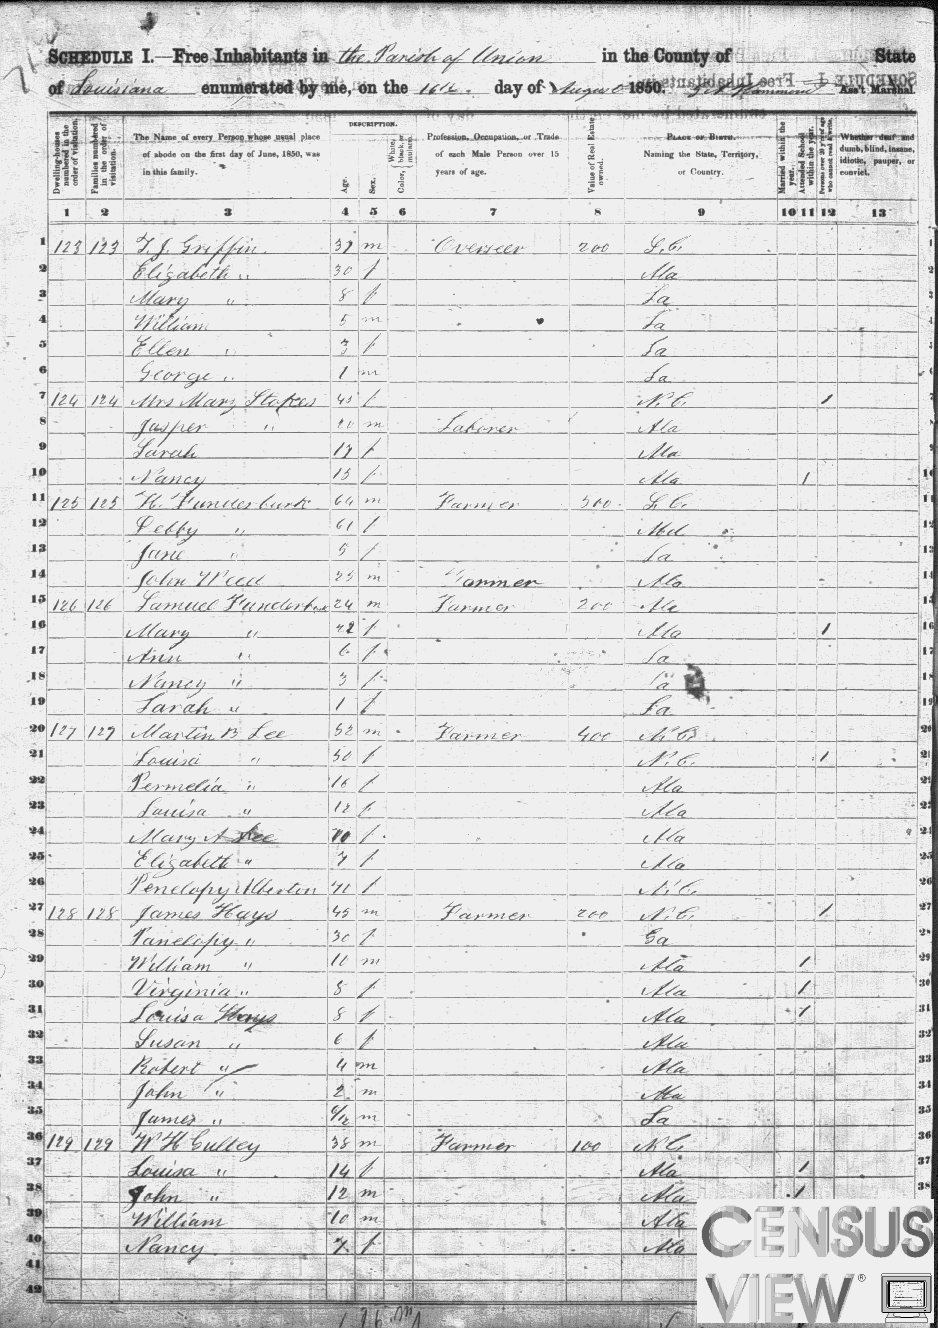 SCHEDULE I.—Free Inhabitants in the Parish of Union in the County of State
of Louisiana enumerated by me, on the 16th day of August 1850. Ass't Marshal.
Dwelling-houses numbered in the order of visitation.
Families numbered in the order of visitation.
The Name of every Person whose usual place of abode on the first day of June, 1850, was in this family.
DESCRIPTION.
Age.
Sex.
Color, White, black, or mulatto.
Profession, Occupation, or Trade of each Male Person over 15 years of age.
Value of Real Estate owned.
PLACE OF BIRTH. Naming the State, Territory, or Country.
Married within the year.
Attended School within the year.
Persons over 20 y'rs of age who cannot read & write.
Whether deaf and dumb, blind, insane, idiotic, pauper, or convict.
1 2 3 4 5 6 7 8 9 10 11 12 13
1 123 123 T. J. Griffin 37 m Overseer 200 S.C.
2 Elizabeth " 30 f Ala
3 Mary " 8 f La
4 William 5 m La
5 Ellen " 3 f La
6 George " 1 m La
7 124 124 Mrs Mary Stokes 45 f N.C. 1
8 Jasper " 20 m Laborer Ala
9 Sarah 17 f Ala
10 Nancy 15 f Ala 1
11 125 125 H. Funderburk 64 m Farmer 500 S.C.
12 Debby " 61 f Md
13 Jane " 5 f La
14 John Weed 25 m Farmer Ala
15 126 126 Samuel Funderburk 24 m Farmer 200 Ala
16 Mary " 22 f Ala 1
17 Ann " 6 f La
18 Nancy " 3 f La
19 Sarah " 1 f La
20 127 127 Martin B Lee 52 m Farmer 400 N.C.
21 Louisa " 50 f N.C. 1
22 Permelia " 16 f Ala
23 Louisa " 12 f Ala
24 Mary A Lee 10 f Ala
25 Elizabeth " 7 f Ala
26 Penelopy Alberton 71 f N.C.
27 128 128 James Hays 45 m Farmer 200 N.C. 1
28 Panelopy " 30 f Ga
29 William " 10 m Ala 1
30 Virginia " 8 f Ala 1
31 Louisa Hays 8 f Ala 1
32 Susan " 6 f Ala
33 Robert " 4 m Ala
34 John " 2 m Ala
35 James " 6/12 m La
36 129 129 W H Culley 38 m Farmer 100 N.C.
37 Louisa " 14 f Ala 1
38 John " 12 m Ala 1
39 William 10 m Ala
40 Nancy 7 f Ala
41
42
CENSUS
VIEW®